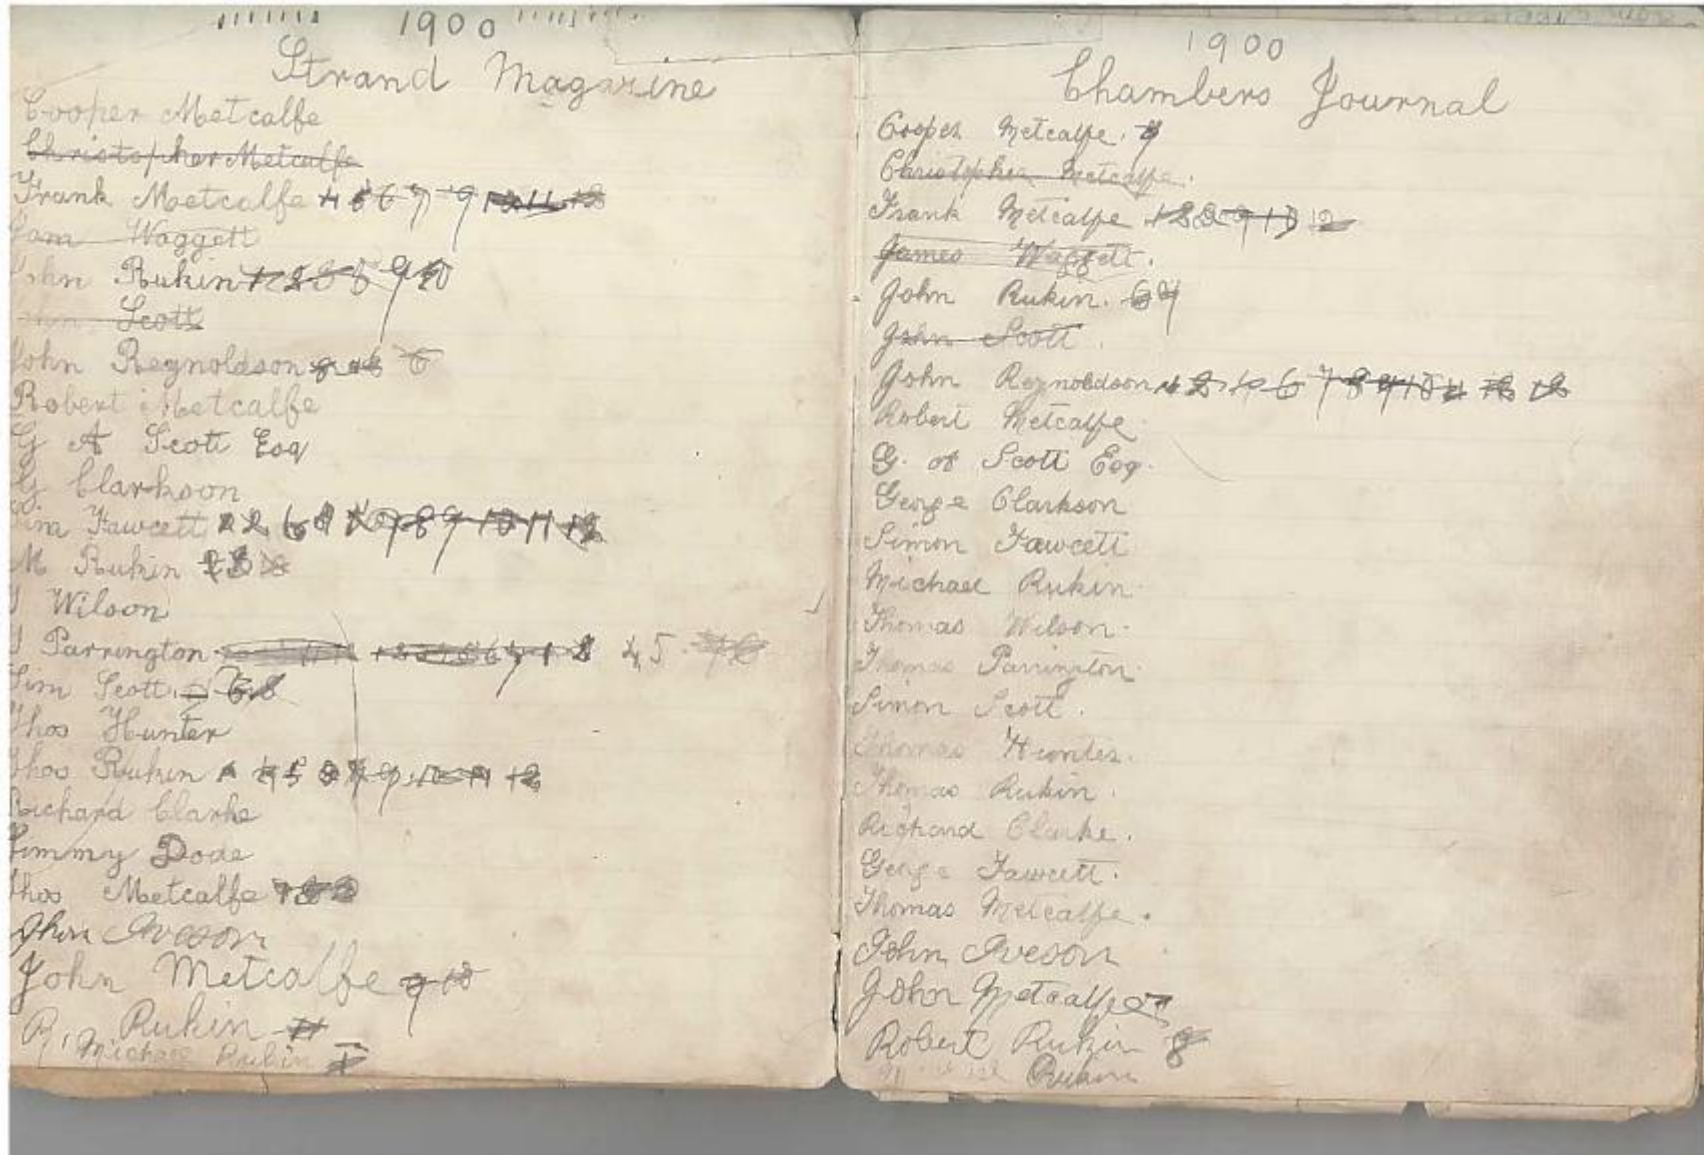 1900
Strand Magazine
Cooper Metcalfe
Christopher Metcalfe
Frank Metcalfe 4 5 6 7 9 10 11 12
Waggett
John Rukin 1 2 3 5 9 10
John Scott
John Reynoldson 6
Robert Metcalfe
G A Scott Esq
G Clarkson
Sim Fawcett 1 2 6 7 8 9 10 11 12
M Rukin
T Wilson
T Parrington 4, 5
Sim Scott
Thos Hunter
Thos Rukin
Richard Clarke
Simmy Dode
Thos Metcalfe
John Iveson
John Metcalfe 9 10
R, Rukin 11
Michael Rukin
1900
Chambers Journal
Cooper Metcalfe.
Christopher Metcalfe.
Frank Metcalfe 12
James Waggett.
John Rukin. 6
John Scott.
John Reynoldson 6 7 8 9 10 11 12
Robert Metcalfe
G. Scott Esq.
George Clarkson
Simon Fawcett
Michael Rukin.
Thomas Wilson.
Thomas Parrington.
Simon Scott.
Thomas Hunter.
Thomas Rukin.
Richard Clarke.
George Fawcett.
Thomas Metcalfe.
John Iveson
John Metcalfe
Robert Rukin 8
Rukin